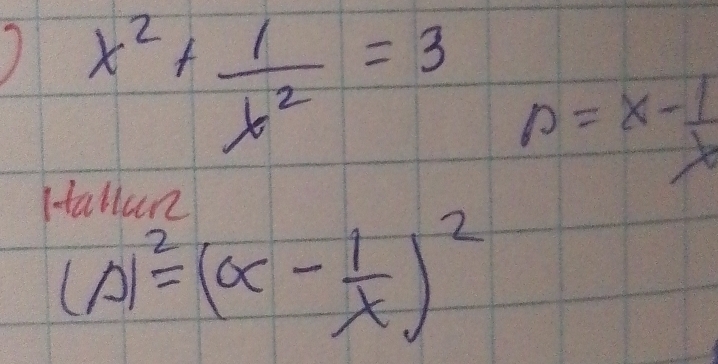 ) x² + 1/x² = 3
p = x - 1/x
Hallarz
(p)² = (x - 1/x)²